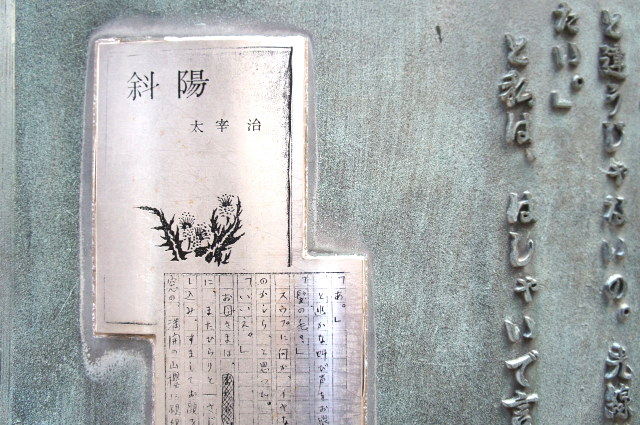 と違うじゃないの。光線
たい。」
と私は、はしゃいで言
斜陽
太宰治
「あ。」
と幽かな叫び声をお
「髪の毛？」
スウプに何か、イヤな
のかしら、と思った。
「いいえ。」
お母さまは、
に、またひらりと一さじ
し込み、すましてお顔を
窓の、満開の山桜に視線